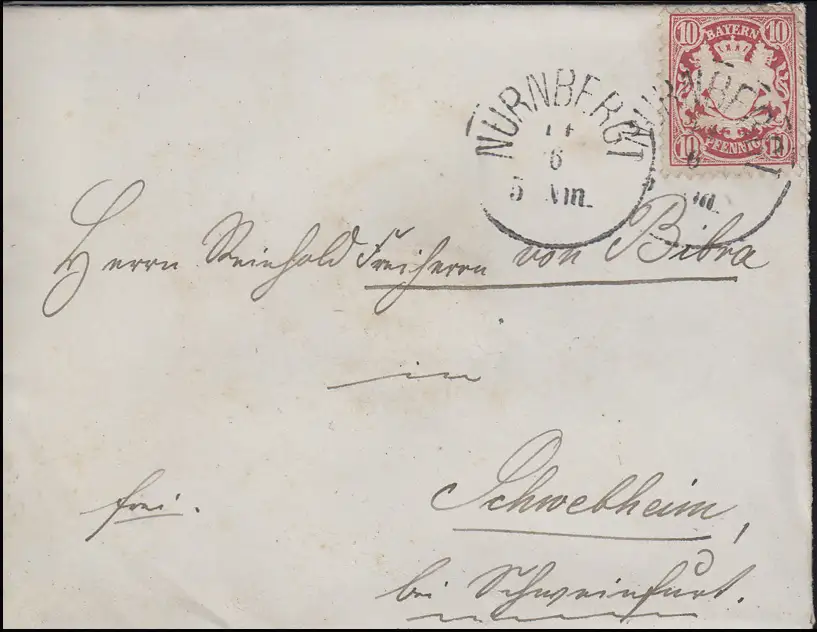 10 BAYERN 10
10 PFENNIG 10
NÜRNBERG I
6
5 Nm.
NÜRNBERG I
6
Herrn Reinhold Freiherrn von Bibra
in
Schwebheim,
frei.
bei Schweinfurt.